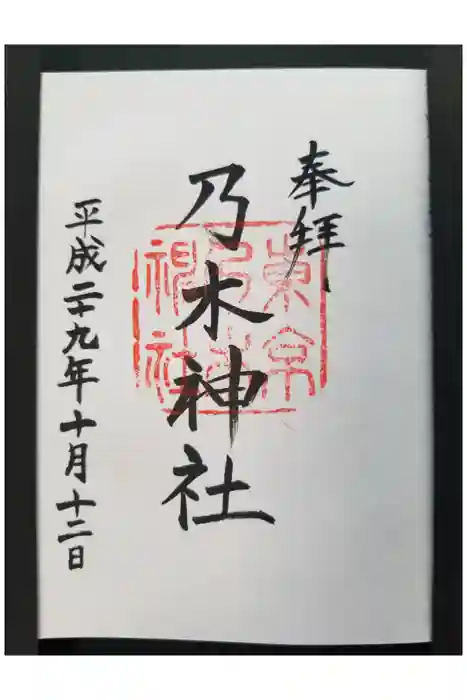 奉拝
東京
乃木
神社
乃木神社
平成二十九年十月十二日